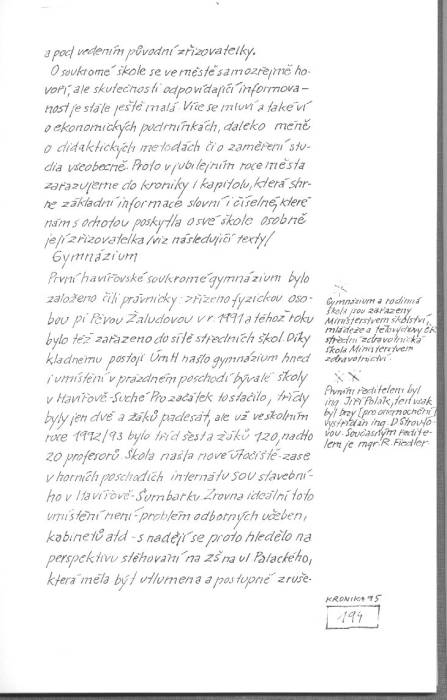 a pod vedením původní zřizovatelky.
O soukromé škole se ve městě samozřejmě ho-
voří, ale skutečnosti odpovídající informova-
nost je stále ještě malá. Více se mluví a také ví
o ekonomických podmínkách, daleko méně
o didaktických metodách či o zaměření stu-
dia všeobecně. Proto v jubilejním roce města
zařazujeme do kroniky i kapitolu, která shr-
ne základní informace slovní i číselné, které
nám s ochotou poskytla o své škole osobně
její zřizovatelka /viz následující texty/
Gymnázium
První havířovské soukromé gymnázium bylo
založeno čili právnicky: zřízeno fyzickou oso-
bou pí Pěvou Žaludovou v r. 1991 a téhož roku
bylo též zařazeno do sítě středních škol. Díky
kladnému postoji ÚmH našlo gymnázium hned
i umístění v prázdném poschodí bývalé školy
v Havířově-Suché Pro začátek to stačilo, třídy
byly jen dvě a žáků padesát, ale už ve školním
roce 1992/93 bylo tříd šest a žáků 120, nadto
20 profesorů Škola našla nové útočiště - zase
v horních poschodích internátu SOU stavební-
ho v Havířově-Šumbarku Zrovna ideální toto
umístění není - problém odborných učeben,
kabinetů atd - s nadějí se proto hledělo na
perspektivu stěhování na ZŠ na ul Palackého,
která měla být utlumena a postupně zruše-
x
Gymnázium a rodinná
škola jsou zařazeny
Ministerstvem školství,
mládeže a tělovýchovy ČR
střední zdravotnická
škola Ministerstvem
zdravotnictví.
x x
Prvním ředitelem byl
ing Jiří Polák, ten však
byl brzy (pro onemocnění)
vystřídán ing. D Strouho-
vou. Současným ředite-
lem je mgr. R. Fiedler.
KRONIKA 95
194